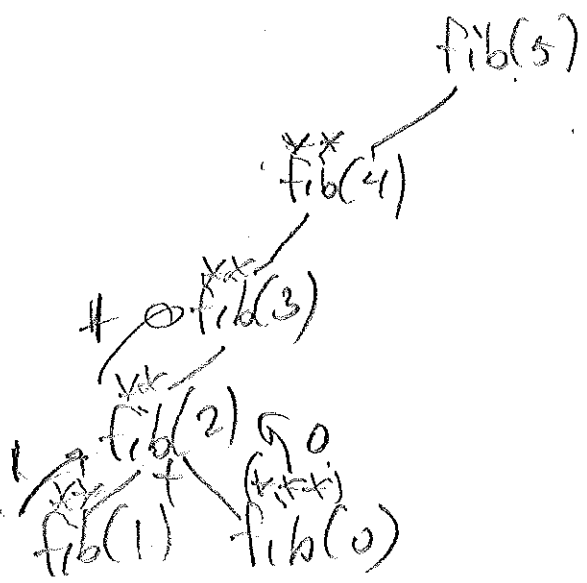 fib(5)
**
fib(4)
**
fib(3)
**
fib(2) 0
1 + (*,**)
**
fib(1) fib(0)